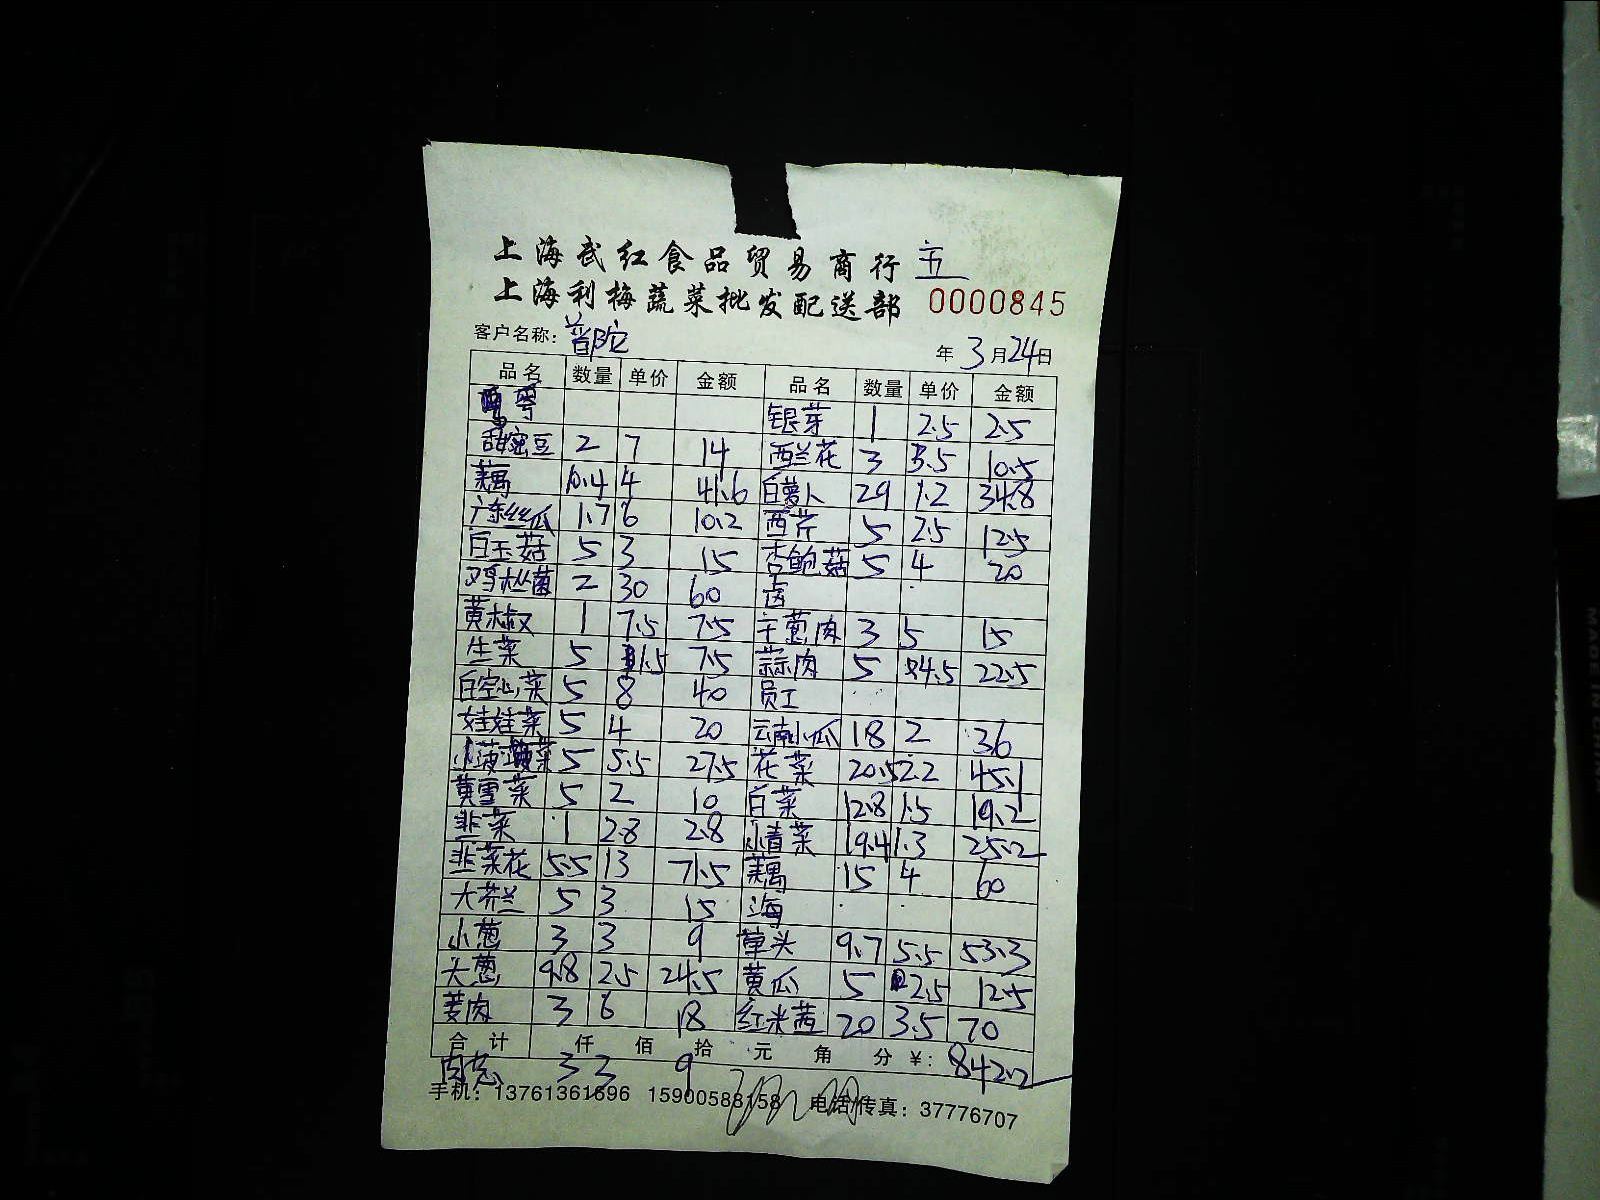 上海武红食品贸易商行
上海利梅蔬菜批发配送部 0000845
客户名称: 普陀 年 3 月 24 日
品名 数量 单价 金额 品名 数量 单价 金额
银芽 1 2.5 2.5
甜蜜豆 2 7 14 西兰花 3 3.5 10.5
藕 10.4 4 41.6 白萝卜 29 1.2 34.8
广东丝瓜 1.7 6 10.2 西芹 5 2.5 12.5
白玉菇 5 3 15 杏鲍菇 5 4 20
鸡枞菌 2 30 60 卤
黄椒 1 7.5 7.5 干葱肉 3 5 15
生菜 5 1.5 7.5 蒜肉 5 4.5 22.5
白空心菜 5 8 40 员工
娃娃菜 5 4 20 云南小瓜 18 2 36
小菠菜 5 5.5 27.5 花菜 20.5 2.2 45.1
黄雪菜 5 2 10 白菜 12.8 1.5 19.2
韭菜 1 2.8 2.8 小青菜 19.4 1.3 25.2
韭菜花 5.5 13 71.5 藕 15 4 60
大芥兰 5 3 15 海
小葱 3 3 9 草头 9.7 5.5 53.3
大葱 9.8 2.5 24.5 黄瓜 5 2.5 12.5
姜肉 3 6 18 红米苋 20 3.5 70
合计 仟 佰 拾 元 角 分 ¥: 842.2
3 3 9
手机: 13761361696 15900588158 电话/传真: 37776707